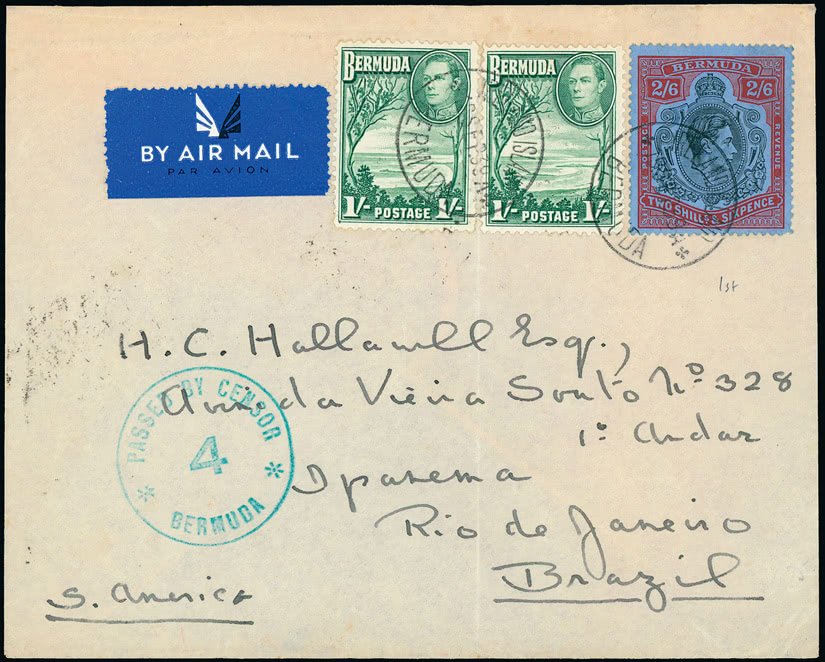 BY AIR MAIL
PAR AVION
BERMUDA
1/- POSTAGE 1/-
BERMUDA
1/- POSTAGE 1/-
BERMUDA
2/6 2/6
POSTAGE REVENUE
TWO SHILLGS & SIXPENCE
BERMUDA
BERMUDA
1st
H. C. Hallawell Esq.,
Avenida Vieira Souto No. 328
1º Andar
Ipanema
Rio de Janeiro
Brazil
S. America
PASSED BY CENSOR
4
BERMUDA